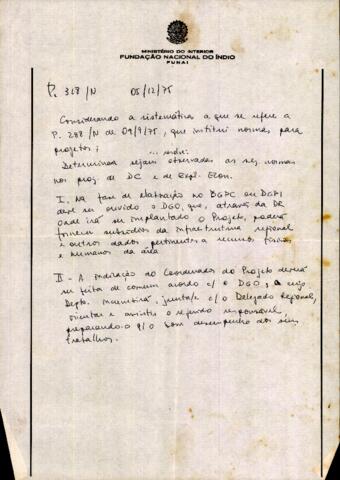 MINISTÉRIO DO INTERIOR
FUNDAÇÃO NACIONAL DO ÍNDIO
FUNAI
P. 328/N 05/12/75
Considerando a sistemática a que se refere a
P. 288/N de 09/9/75, que institui normas para
projetos;
Determinar sejam observadas as seg normas
nos proj. de DC e de Expl. Econ.
I. Na fase de elaboração no BGPC ou DGPI
deve ser ouvido o DGO, que, através da DR
onde irá ser implantado o Projeto, poderá
fornecer subsídios da infraestrutura regional
e outros dados pertinentes a recursos físicos
e humanos da área
II - A indicação do Coordenador do Projeto deverá
ser feita de comum acordo c/ o DGO, a cujo
Depto. incumbirá, junta/e c/ o Delegado Regional,
orientar e assistir o referido responsável,
preparando-o p/ o bom desempenho dos seus
trabalhos.